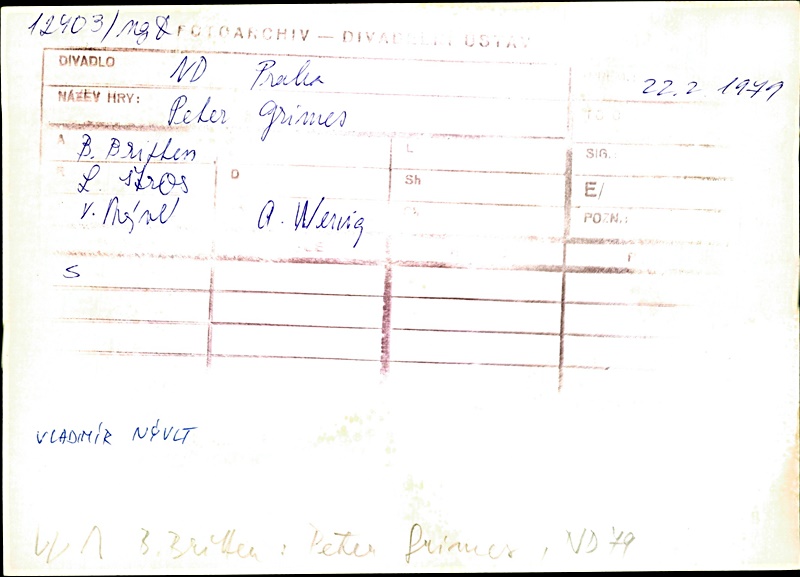 12403/ng8 FOTOARCHIV — DIVADELNÍ ÚSTAV
DIVADLO ND Praha 22.2.1979
NÁZEV HRY: Peter Grimes
A B. Britten L SIG.:
L. Štros D Sh E/
V. Nývlt A. Wervig POZN.:
S
VLADIMÍR NÝVLT
B. Britten : Peter Grimes, ND 79